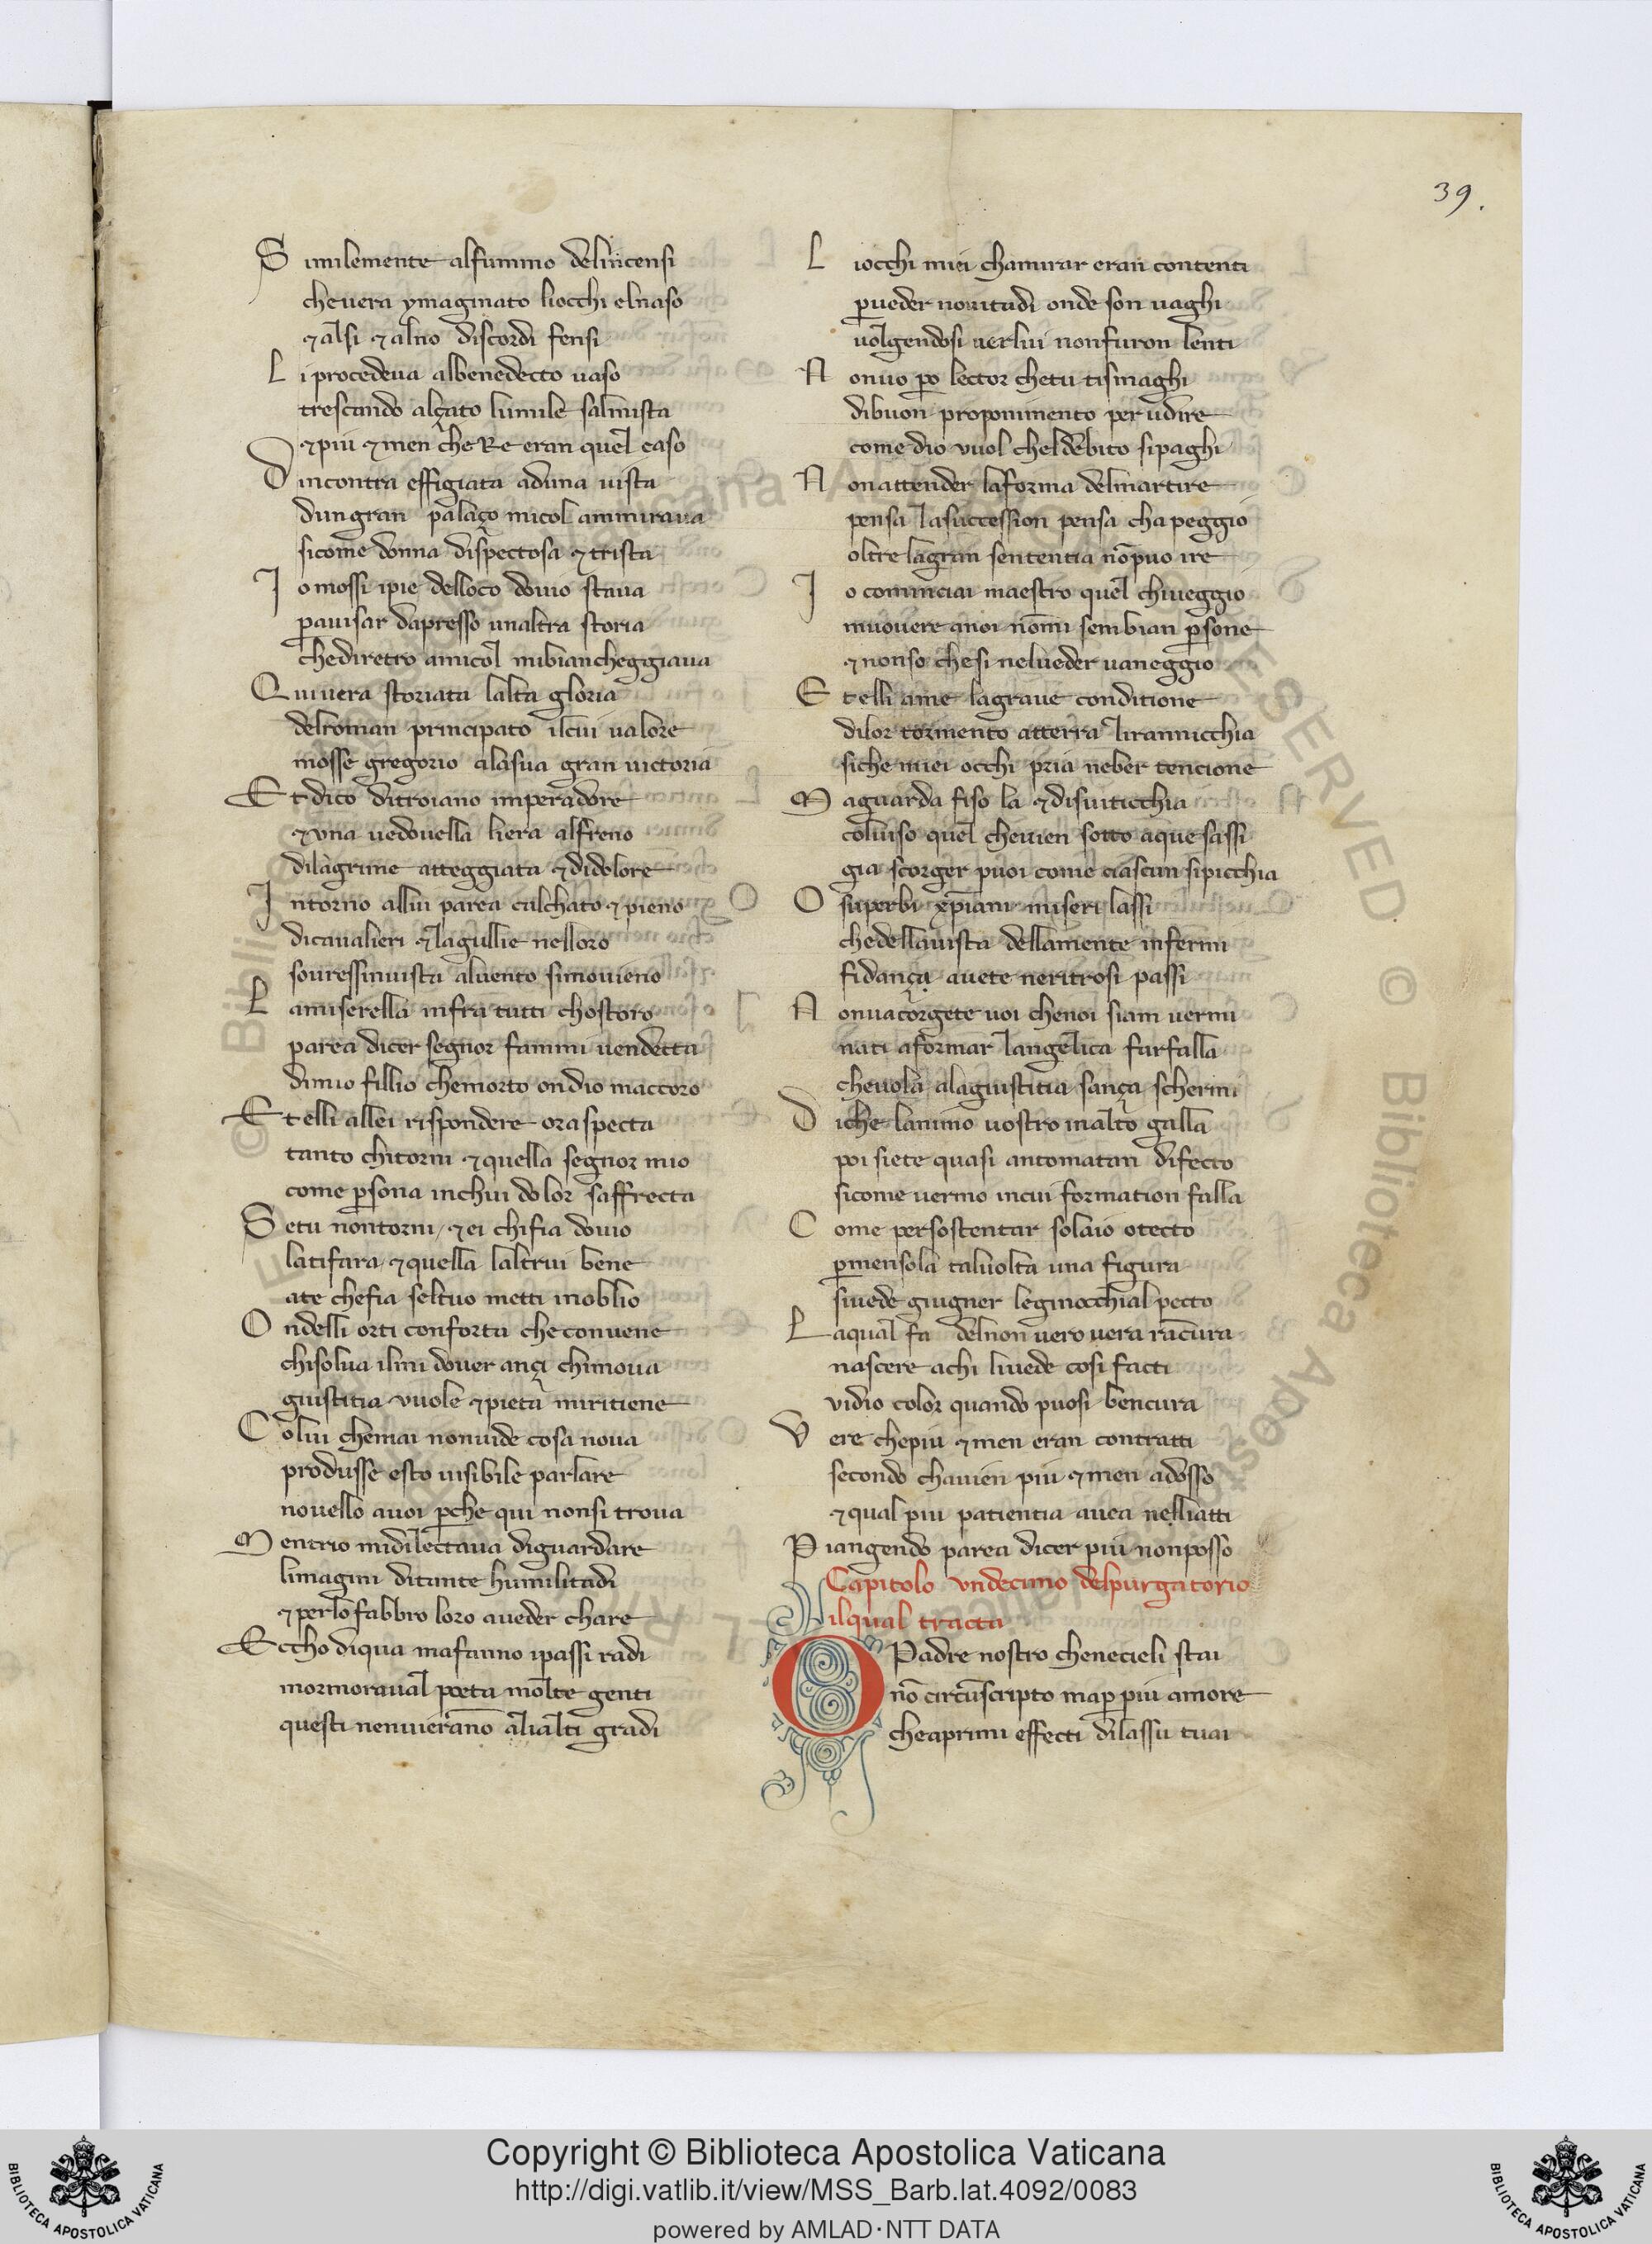 39.
Similemente alfummo delincensi
cheuera ymaginato liocchi elnaso
⁊alsi ⁊alno discordi fensi
Li procedeua albenedecto uaso
trescando alçato lumile salmista
⁊piu ⁊men che Re eran quel caso
Dincontra effigiata aduna uista
dungran palaço micol ammiraua
sicome donna dispectosa ⁊ trista
Io mossi ipie delloco douio staua
ꝑauisar dapresso unaltra storia
chediretro amicol mibiancheggiaua
Quiuera storiata lalta gloria
delroman principato ilcui ualore
mosse gregorio alasua gran uictoria
Et dico ditroiano imperadore
⁊vna uedouella liera alfreno
dilagrime atteggiata ⁊didolore
Intorno allui parea calchato ⁊ pieno
dicaualieri ⁊lagullie nelloro
souressinuista aluento simouieno
Lamiserella infra tutti chostoro
parea dicer segnor fammi uendetta
dimio fillio chemorto ondio maccoro
Et elli allei rispondere ora specta
tanto chitorni ⁊quella segnor mio
come ꝑsona inchui dolor saffrecta
Setu nontorni / ⁊ ei chifia douio
latifara / ⁊quella laltrui bene
ate chefia seltuo metti inoblio
Ondelli orti conforta che convene
chisolua ilmi douer ançi chimoua
giustitia vuole ⁊pieta miritiene
Colui chemai nonuide cosa noua
produsse esto uisibile parlare
nouello anoi ꝑche qui nonsi troua
Mentrio midilectaua diguardare
limagini ditante humilitadi
⁊perlo fabbro loro aueder chare
Eccho diqua mafanno ipassi radi
mormoraual poeta molte genti
questi neniueranno alialti gradi
Liocchi miei chamirar eran contenti
ꝑueder nouitadi onde son uaghi
uolgendosi uerlui nonfuron lenti
Nonuo ꝑo lector chetu tismaghi
dibuon proponimento per udire
come dio vuol cheldebito sipaghi
Nonattender laforma delmartire
pensa lasuccession pensa cha peggio
oltre lagran sententia nōpuo ire
Io cominciai maestro quel chiueggio
muouere anoi nōmi sembian ꝑsone
⁊nonso chesi nelueder uaneggio
Et elli ame lagraue conditione
dilor tormento atterra lirannicchia
siche miei occhi pria neber tencione
Maguarda fiso la ⁊disuiticchia
coluiso quel cheuien sotto aque sassi
gia scorger puoi come ciascun sipicchia
O superbi xp̄iani miseri lassi
chedellauista dellamente infermi
fidança auete neritrosi passi
Nonuacorgete uoi chenoi siam uermi
nati aformar langelica farfalla
cheuola alagiustitia sança schermi
Diche lanimo uostro inalto galla
poi siete quasi antomatan difecto
sicome uermo incui formation falla
Come persostentar solaio otecto
ꝑmensola taluolta una figura
siuede giugner leginocchial pecto
Laqual fa delnon uero uera rancura
nascere achi liuede cosi facti
vidio color quando puosi bencura
Vere chepiu ⁊men eran contratti
secondo chauien piu ⁊men adosso
⁊qual piu patientia auea nelliatti
Piangendo parea dicer piu nonposso
Capitolo vndecimo delpurgatorio
ilqual tracta
O Padre nostro chenecieli stai
nō circūscripto maꝑ piu amore
cheaprimi effecti dilassu tuai
Copyright © Biblioteca Apostolica Vaticana
http://digi.vatlib.it/view/MSS_Barb.lat.4092/0083
powered by AMLAD·NTT DATA
BIBLIOTECA APOSTOLICA VATICANA
BIBLIOTECA APOSTOLICA VATICANA